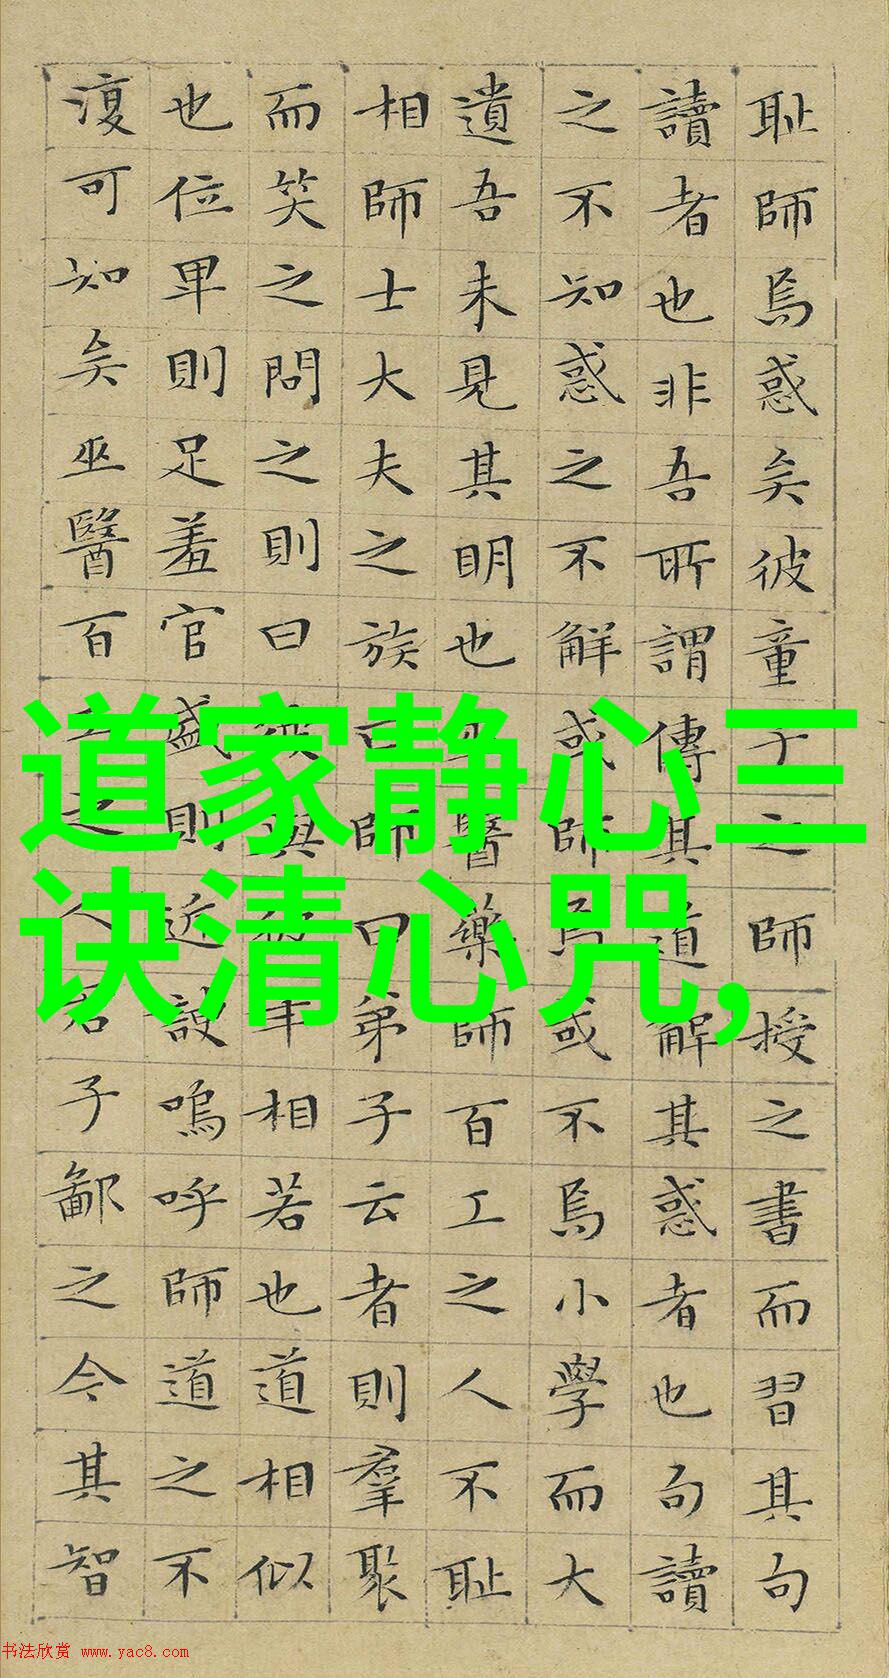 耻師焉惑矣彼童子之師授之書而習其句
讀者也非吾所謂傳其道解其惑者也句讀
之不知惑之不解或師焉或不焉小學而大
遺吾未見其明也巫醫藥師百工之人不耻
相師士大夫之族曰師曰弟子云者則羣聚
而笑之問之則曰彼與彼年相若也道相似
也位卑則足羞官盛則近諛嗚呼師道之不
復可知矣巫醫百工之人君子鄙之今其智
道家静心三
诀清心咒,
书法欣赏 www.yac8.com